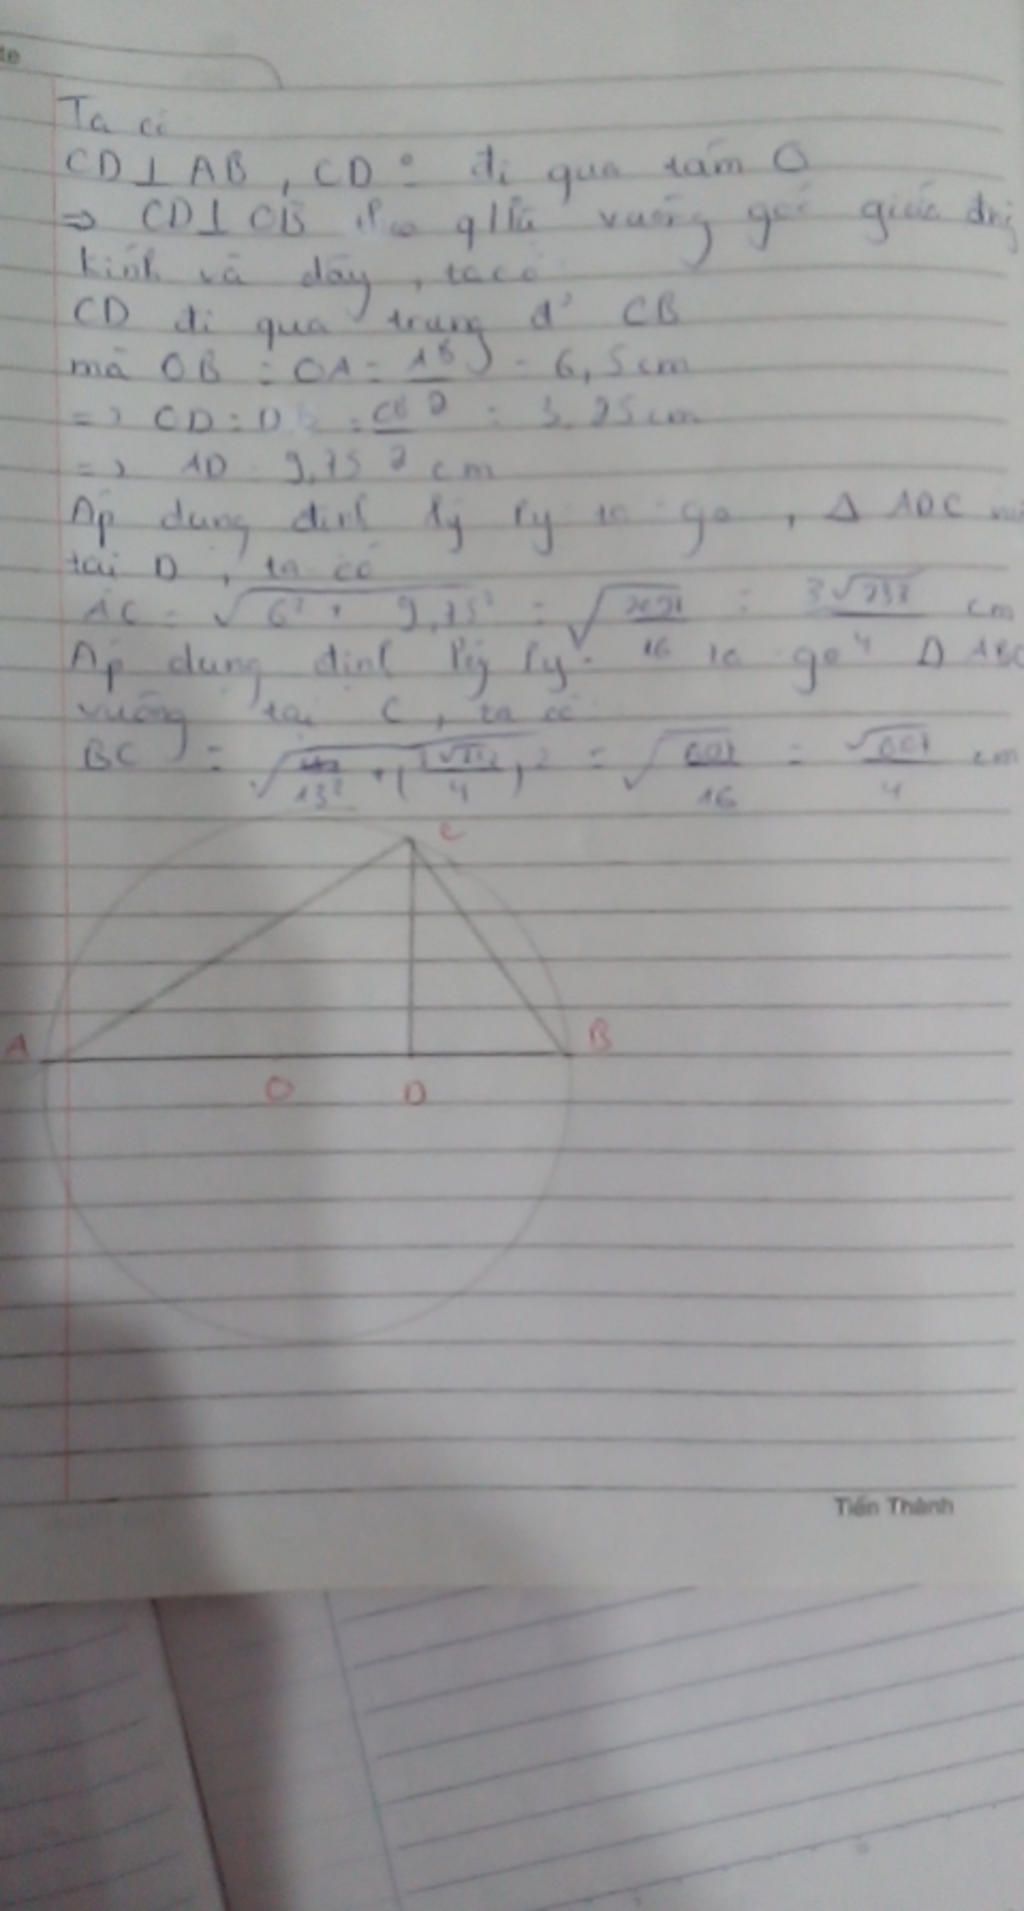 Ta có
CD⊥AB, CD đi qua tâm O
=> CD⊥OB vuông góc giữa
kính và dây, ta có
CD đi qua trung đ' CB
mà OB = OA = AB/2 = 6,5cm
=> CD = = OB/2 = 3,25cm
=> AD = 9,75 cm
Áp dụng định lý Py ta go, Δ ADC
tại D, ta có
AC = √(6² + 9,75²) = cm
Áp dụng định lý Py ta go Δ ABC
vuông tại C, ta có
BC = = √(601/16) = √601/4 cm
C
A
B
O
D
Tiến Thành